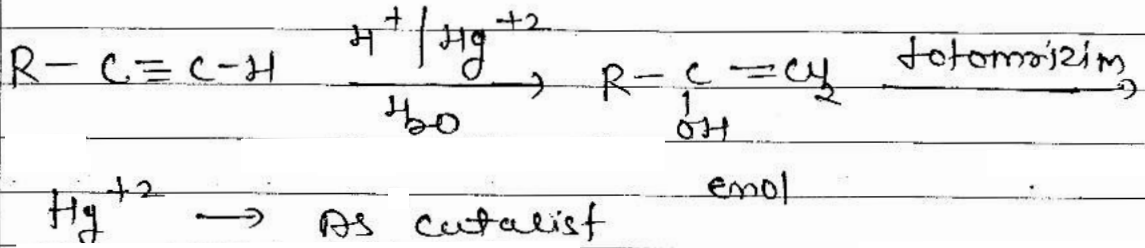 R – C ≡ C – H  H⁺ | Hg⁺² / H₂O →  R – C = CH₂  totomrizim →
OH
enol
Hg⁺² → As cutalist